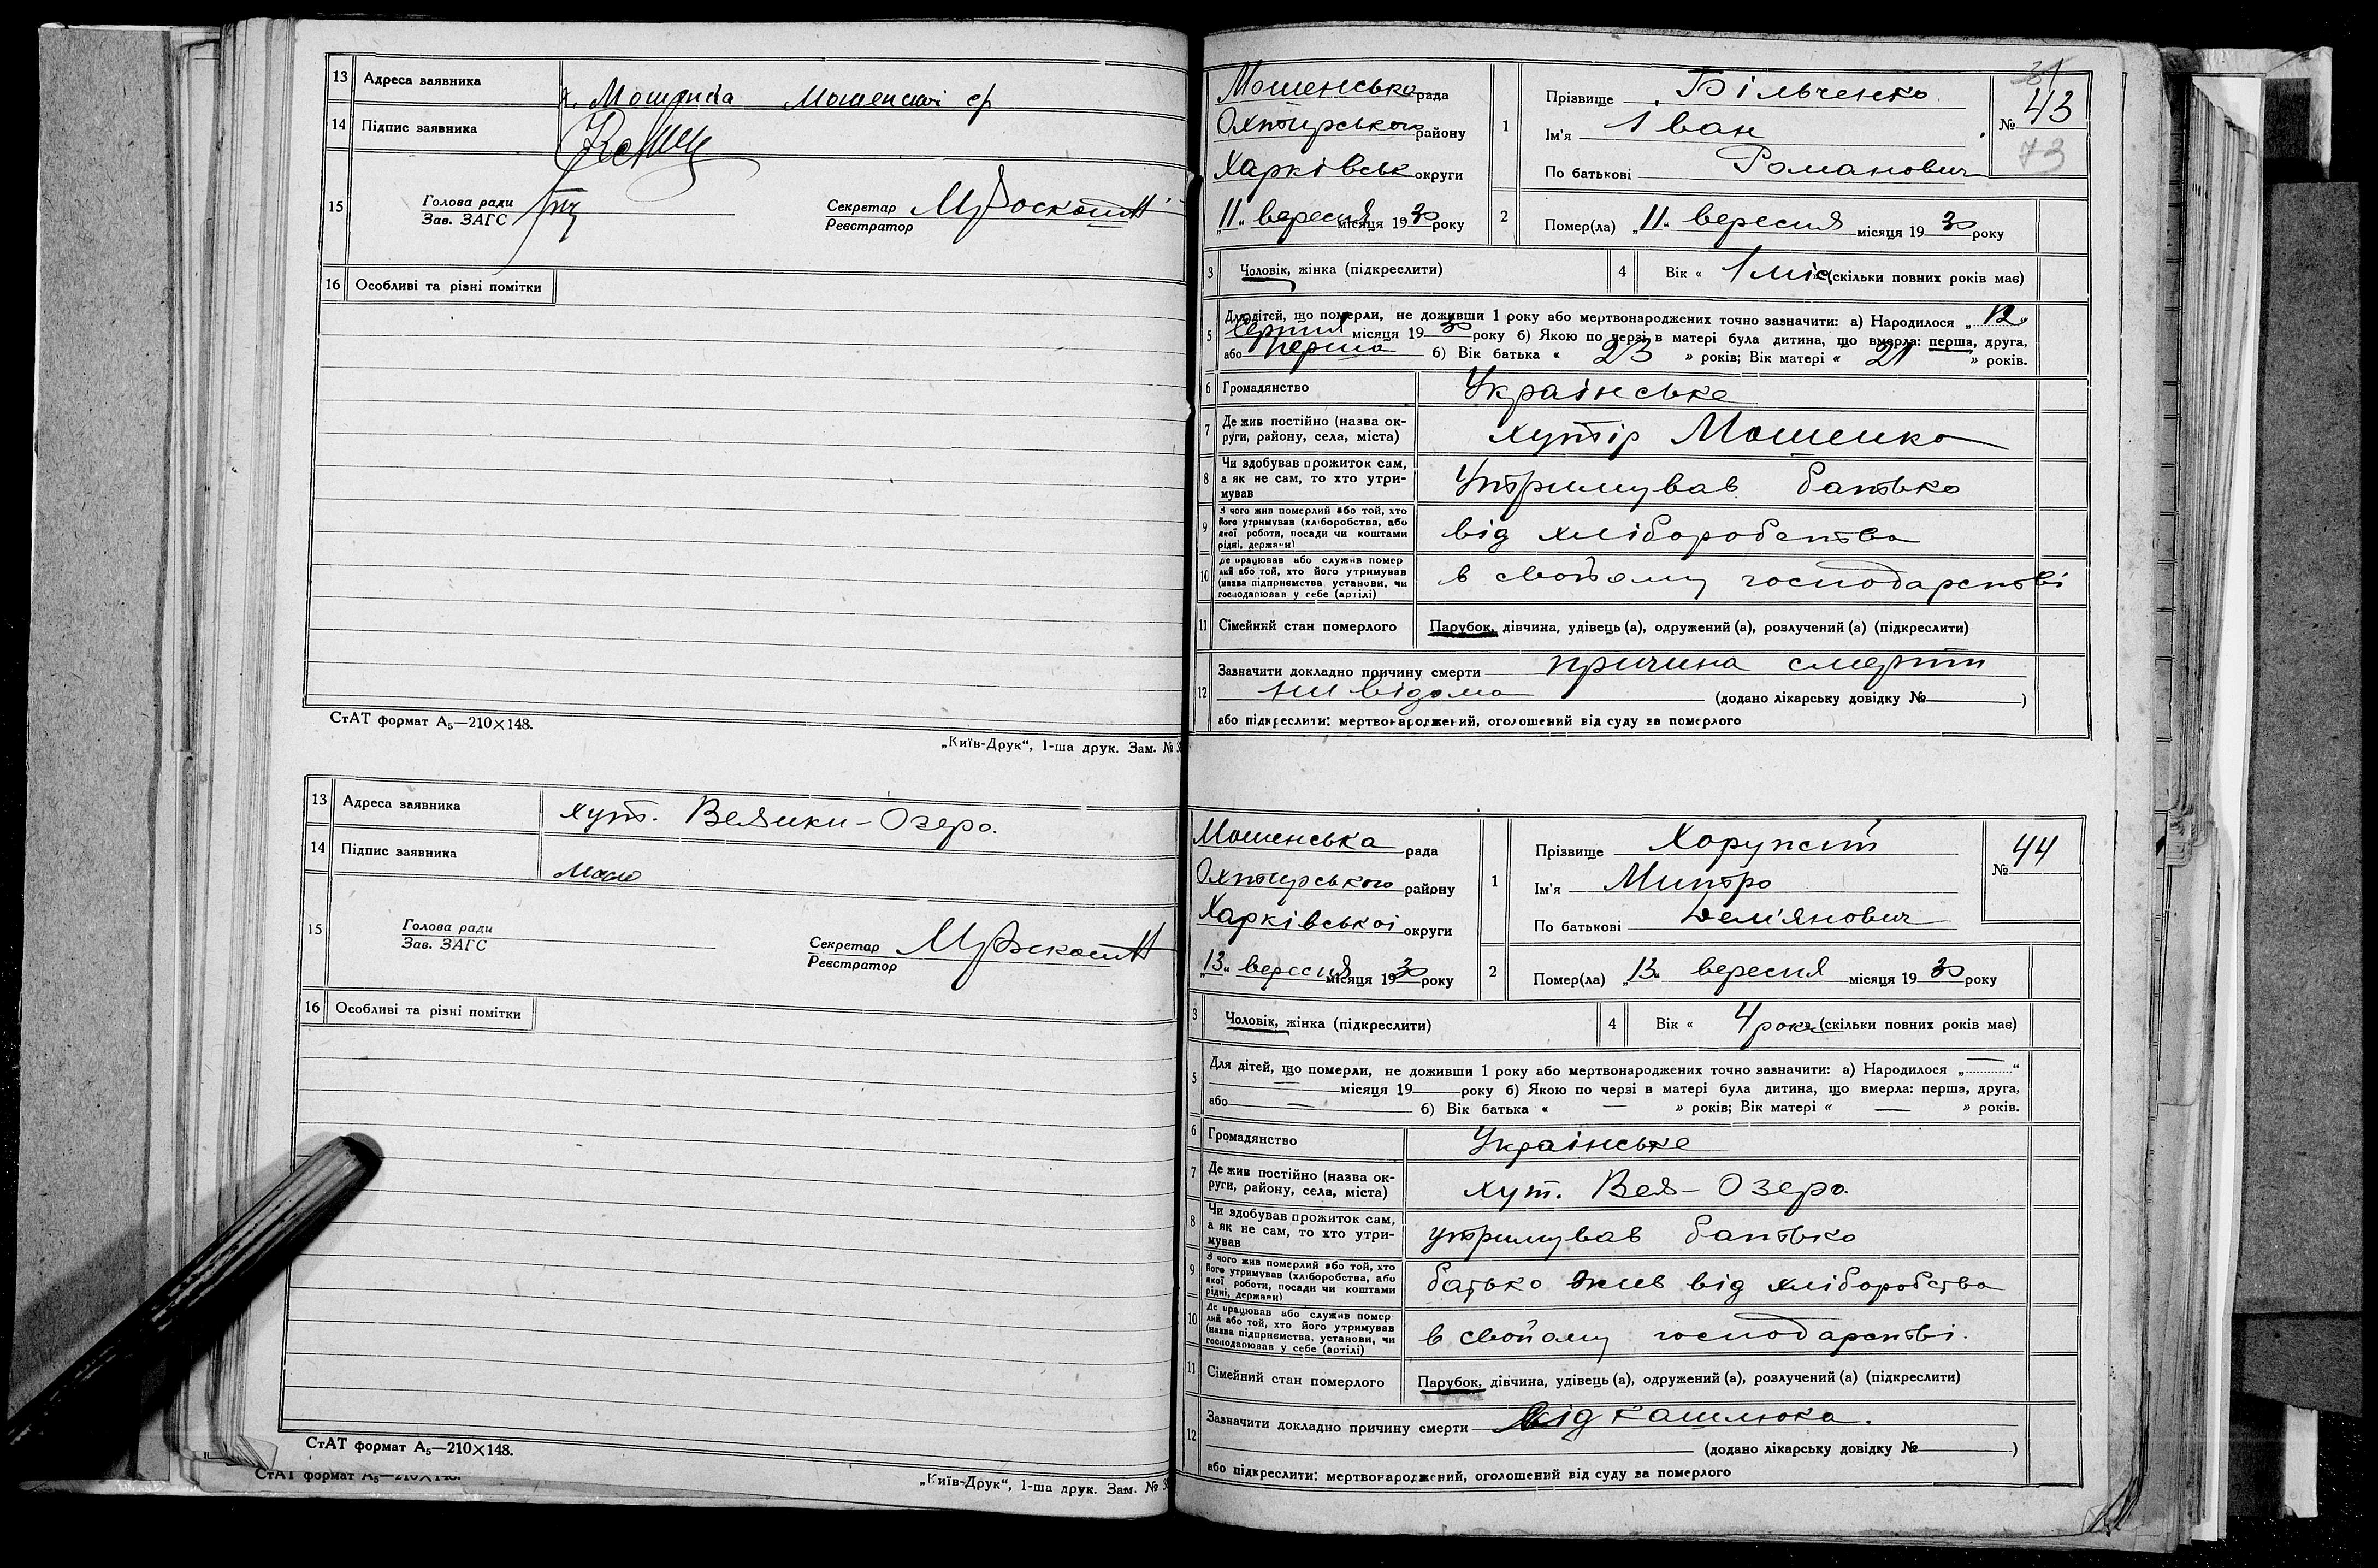 13 Адреса заявника х. Мошенка Мошенської с/р
14 Підпис заявника
15 Голова ради
Зав. ЗАГС
Секретар
Реєстратор
16 Особливі та різні помітки
СтАТ формат А₅—210×148.
„Київ-Друк“, 1-ша друк. Зам. № 3
13 Адреса заявника хут. Велики-Озера.
14 Підпис заявника
15 Голова ради
Зав. ЗАГС
Секретар
Реєстратор
16 Особливі та різні помітки
СтАТ формат А₅—210×148.
СтАТ формат А₅—210×148.
„Київ-Друк“, 1-ша друк. Зам. № 3
Мошенська рада
Охтирського району
Харківськ округи
„11“ вересня місяця 1930 року
1 Прізвище Більченко
Ім'я Іван
По батькові Романович
31
№ 43
73
2 Помер(ла) „11“ вересня місяця 1930 року
3 Чоловік, жінка (підкреслити)
4 Вік « 1 міс » (скільки повних років має)
5 Для дітей, що померли, не доживши 1 року або мертвонароджених точно зазначити: а) Народилося „12“
серпня місяця 1930 року б) Якою по черзі в матері була дитина, що вмерла: перша, друга,
або перша б) Вік батька « 23 » років; Вік матері « 21 » років.
6 Громадянство Українське
7 Де жив постійно (назва ок-
руги, району, села, міста) хутір Мошенка
8 Чи здобував прожиток сам,
а як не сам, то хто утри-
мував Утримував батько
9 З чого жив померлий або той, хто
його утримував (хліборобства, або
якої роботи, посади чи коштами
рідні, держави) від хліборобства
10 Де працював або служив помер
лий або той, хто його утримував
(назва підприємства установи, чи
господарював у себе (артілі) в свойому господарстві
11 Сімейний стан померлого Парубок, дівчина, удівець (а), одружений (а), розлучений (а) (підкреслити)
12 Зазначити докладно причину смерти причина смерти
ни відома (додано лікарську довідку № )
або підкреслити: мертвонароджений, оголошений від суду за померлого
Мошенська рада
Охтирського району
Харківської округи
„13“ вересня місяця 1930 року
1 Прізвище
Ім'я Митро
По батькові Дем'янович
№ 44
2 Помер(ла) „13“ вересня місяця 1930 року
3 Чоловік, жінка (підкреслити)
4 Вік « 4 роки » (скільки повних років має)
5 Для дітей, що померли, не доживши 1 року або мертвонароджених точно зазначити: а) Народилося „—“
— місяця 19 року б) Якою по черзі в матері була дитина, що вмерла: перша, друга,
або — б) Вік батька « — » років; Вік матері « — » років.
6 Громадянство Українське
7 Де жив постійно (назва ок-
руги, району, села, міста) хут. Вел-Озера.
8 Чи здобував прожиток сам,
а як не сам, то хто утри-
мував утримував батько
9 З чого жив померлий або той, хто
його утримував (хліборобства, або
якої роботи, посади чи коштами
рідні, держави) батько жив від хліборобства
10 Де працював або служив помер
лий або той, хто його утримував
(назва підприємства, установи, чи
господарював у себе (артілі) в свойому господарстві.
11 Сімейний стан померлого Парубок, дівчина, удівець (а), одружений (а), розлучений (а) (підкреслити)
12 Зазначити докладно причину смерти від кашлюка.
(додано лікарську довідку № )
або підкреслити: мертвонароджений, оголошений від суду за померлого